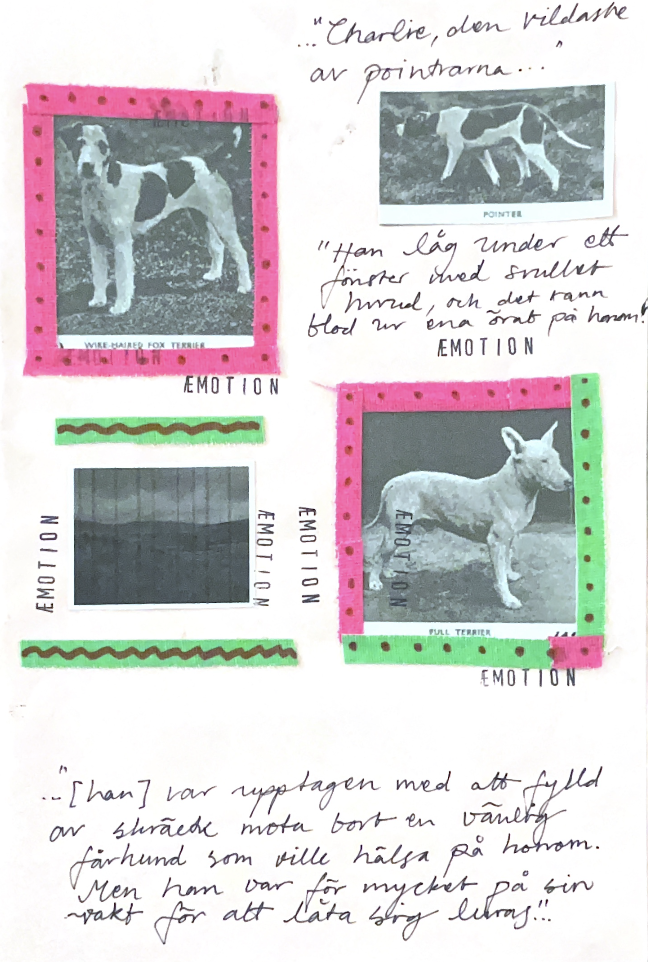 ..."Charlie, den vildaste
av pointrarna..."
ÆMOTION
WIRE-HAIRED FOX TERRIER
ÆMOTION
ÆMOTION
POINTER
"Han låg under ett
fönster med svullet
huvud, och det rann
blod ur ena örat på honom."
ÆMOTION
ÆMOTION
ÆMOTION
ÆMOTION
ÆMOTION
BULL TERRIER
ÆMOTION
..."[han] var upptagen med att fylld
av skräck mota bort en vänlig
fårhund som ville hälsa på honom.
Men han var för mycket på sin
vakt för att låta sig luras"...